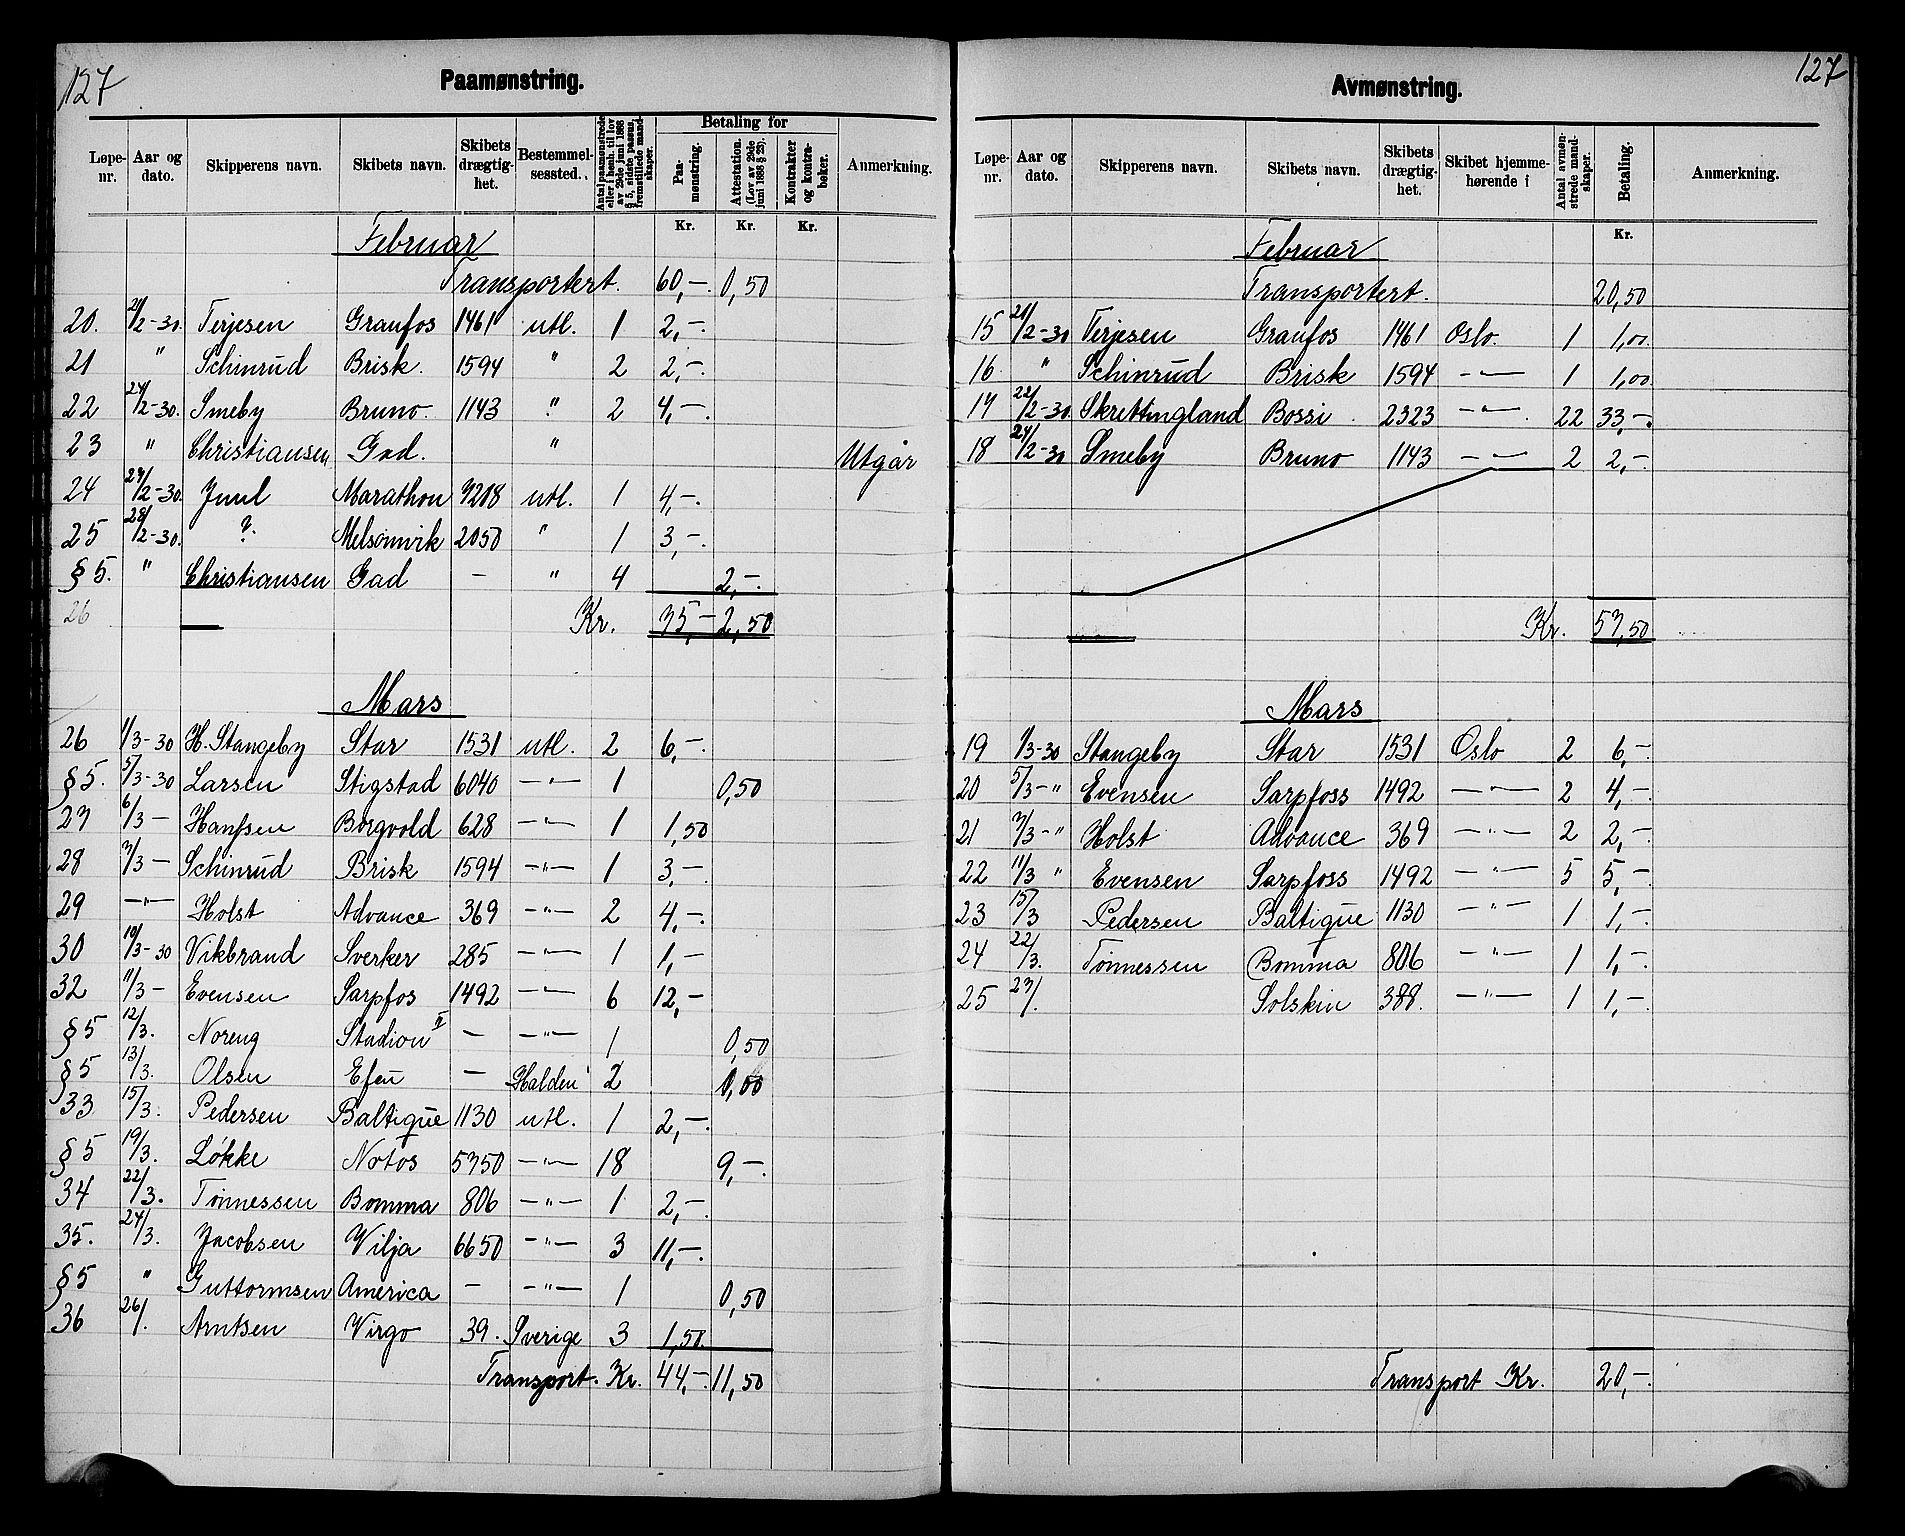 127
Paamønstring.
Løpe-nr. Aar og dato. Skipperens navn. Skibets navn. Skibets drægtig-het. Bestemmel-sessted. Antal paamønstrede eller i henh. til lov av 29de juni 1888 § 5, sidste passus, fremstillede mand-skaper. Betaling for Paa-mønstring. Attestation. (Lov av 29de juni 1888 § 23). Kontrakter og kontra-bøker. Anmerkning.
Kr. Kr. Kr.
Februar
Transportert. 60,-. 0,50
20. 21/2-30. Terjesen Granfos 1461 utl. 1 2,-.
21 " Schinrud Brisk. 1594 " 2 2,-.
22 24/2-30. Smeby Bruno. 1143 " 2 4,-.
23 " Christiansen Gad. " Utgår
24 27/2-30. Juul Marathon 7208 utl. 1 4,-.
25 28/2-30. ? Melsomvik 2050 " 1 3,-.
§ 5. " Christiansen Gad - " 4 2,-.
26 Kr. 75,- 2,50
Mars
26 1/3-30 H. Stangeby Star 1531 utl. 2 6,-.
§ 5. 5/3-30 Larsen Stigstad 6040 -"- 1 0,50
27 6/3- Hanssen Borgvold 628 -"- 1 1,50
28 7/3- Schinrud Brisk 1594 -"- 1 3,-.
29 -"- Holst Advance 369 -"- 2 4,-.
30 10/3-30 Vikbrand Sverker 285 -"- 1 1,-
32 11/3- Evensen Sarpfos 1492 -"- 6 12,-
§ 5 12/3. Noreng Stadion II - -"- 1 0,50
§ 5 13/3. Olsen - Halden 2
33 15/3. Pedersen Baltique 1130 utl. 1 2,-.
§ 5 19/3. Løkke Notos 5750 -"- 18 9,-.
34 22/3. Tønnessen Bomma 806 -"- 1 2,-.
35. 24/3. Jacobsen Vilja 6650 -"- 3 11,-.
§ 5 " Guttormsen America - -"- 1 0,50
36 26/. Arntsen Virgo 39. Sverige 3 1,50.
Transport. Kr. 44,-. 11,50
127
Avmønstring.
Løpe-nr. Aar og dato. Skipperens navn. Skibets navn. Skibets drægtig-het. Skibet hjemme-hørende i Antal avmøn-strede mand-skaper. Betaling. Anmerkning.
Kr.
Februar
Transportert. 20,50
15 21/2-30 Terjesen Granfos 1461 Oslo. 1 1,00.
16 " Schinrud Brisk 1594 -"- 1 1,00
17 22/2-30. Skrettingland Bossi. 2323 -"- 22 33,-.
18 24/2-30 Smeby Bruno 1143 -"- 2 2,-.
Kr. 57,50
Mars
19 1/3-30 Stangeby Star 1531 Oslo 2 6,-
20 5/3-" Evensen Sarpfoss 1492 -"- 2 4,-.
21 7/3-" Holst Advance 369 -"- 2 2,-.
22 11/3 " Evensen Sarpfoss 1492 -"- 5 5,-.
23 15/3 Pedersen Baltique 1130 -"- 1 1,-.
24 22/3. Tønnessen Bomma 806 -"- 1 1,-.
25 27/. Solskin 388. -"- 1 1,-.
Transport Kr. 20,-.